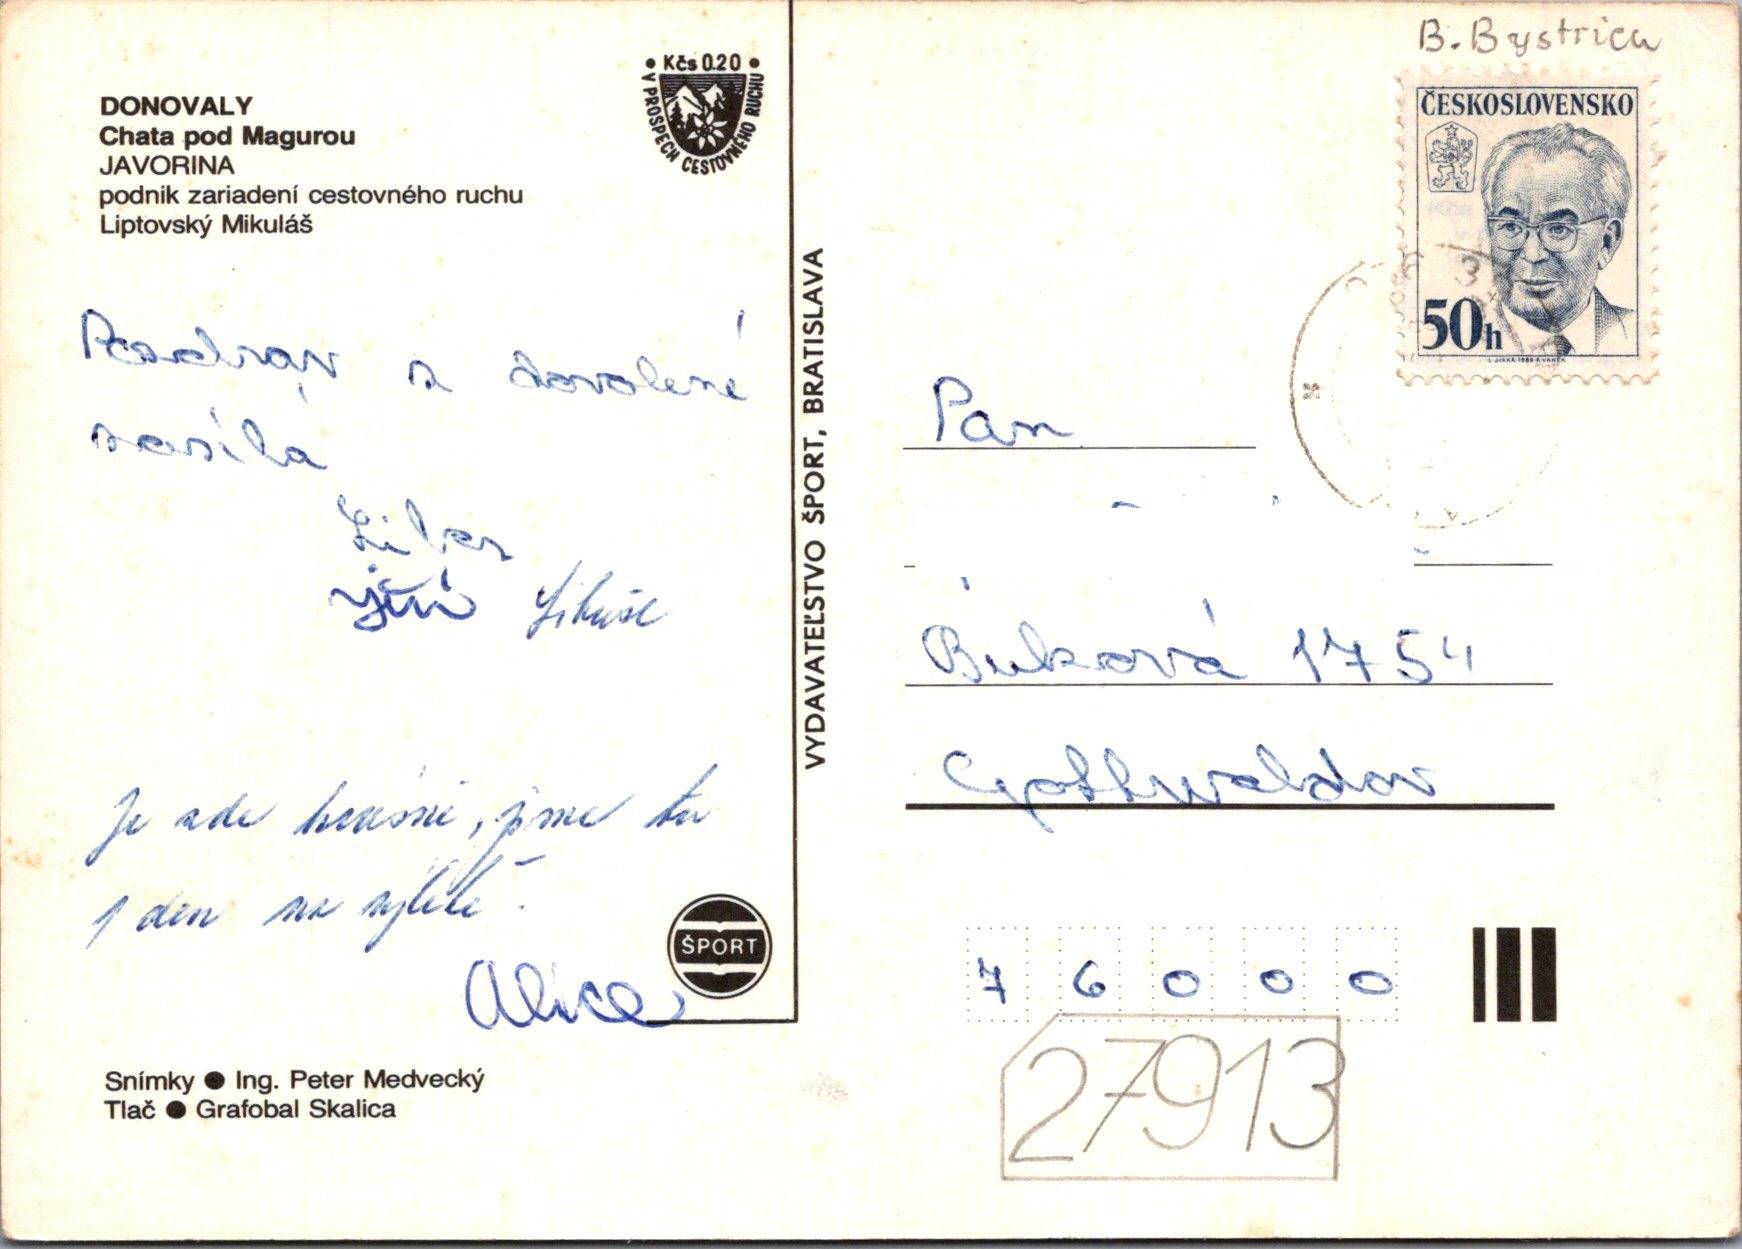 DONOVALY
Chata pod Magurou
JAVORINA
podnik zariadení cestovného ruchu
Liptovský Mikuláš
• Kčs 0.20 •
V PROSPECH CESTOVNÉHO RUCHU
Pozdrav z dovolené
zasílá
Libor
Jiří Libuše
Je zde krásně, jsme tu
1 den na výletě.
Alice
ŠPORT
Snímky ● Ing. Peter Medvecký
Tlač ● Grafobal Skalica
VYDAVATEĽSTVO ŠPORT, BRATISLAVA
B. Bystrica
ČESKOSLOVENSKO
50h
Pan
Buková 1754
Gottwaldov
76000
27913